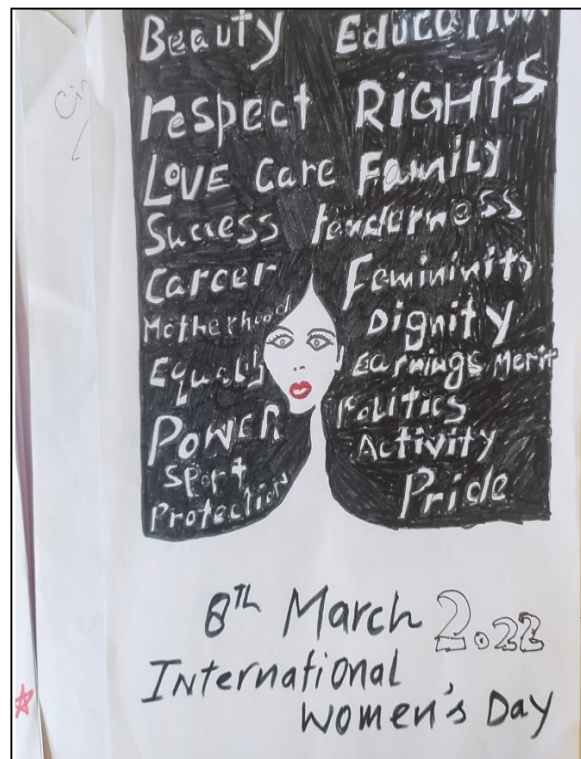 Beauty Education
respect RIGHtS
LOVE Care Family
Success tenderness
Career Femininity
Motherhood Dignity
Equality Earnings Merit
POWER Politics
Sport Activity
Protection Pride
8TH March 2022
International
Women's Day